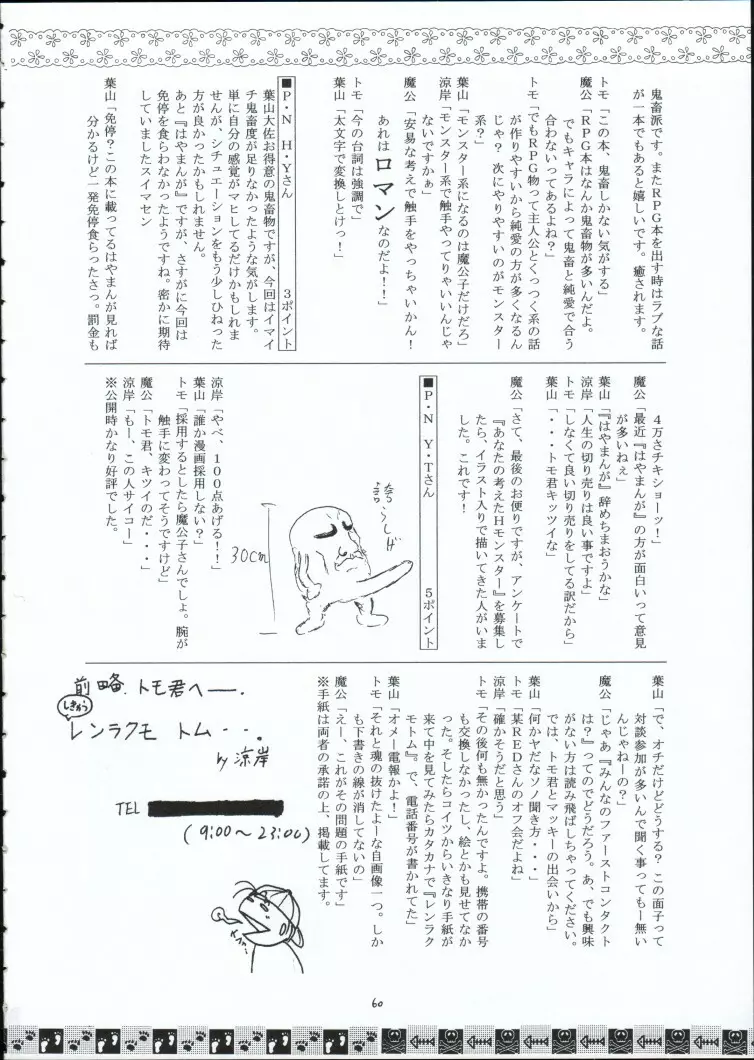 鬼畜派です。またRPG本を出す時はラブな話
が一本でもあると嬉しいです。癒されます。
トモ「この本、鬼畜しかない気がする」
魔公「RPG本はなんか鬼畜物が多いんだよ。
でもキャラによって鬼畜と純愛で合う
合わないってあるよね?」
トモ「でもRPG物って主人公とくっつく系の話
が作りやすいから純愛の方が多くなるん
じゃ?次にやりやすいのがモンスター
系?」
葉山「モンスター系になるのは魔公子だけだろ」
涼岸「モンスター系で触手やってりゃいいんじゃ
ないですかぁ」
魔公「安易な考えで触手をやっちゃいかん!
あれはロマンなのだよ!!」
トモ「今の台詞は強調で」
葉山「太文字で変換しとけっ!」
■P・N H・Yさん 3ポイント
葉山大佐お得意の鬼畜物ですが、今回はイマイ
チ鬼畜度が足りなかったような気がします。
単に自分の感覚がマヒしてるだけかもしれま
せんが、シチュエーションをもう少しひねった
方が良かったかもしれません。
あと『はやまんが』ですが、さすがに今回は
免停を食らわなかったようですね。密かに期待
していましたスイマセン
葉山「免停?この本に載ってるはやまんが見れば
分かるけど一発免停食らったさっ。罰金も
4万さチキショーッ!」
魔公「最近『はやまんが』の方が面白いって意見
が多いねぇ」
葉山「『はやまんが』辞めちまおうかな」
涼岸「人生の切り売りは良い事ですよ」
トモ「しなくて良い切り売りをしてる訳だから」
葉山「・・・トモ君キッツイな」
魔公「さて、最後のお便りですが、アンケートで
『あなたの考えたHモンスター』を募集し
たら、イラスト入りで描いてきた人がいま
した。これです!
■P・N Y・Tさん 5ポイント
誇らしげ
30cm
涼岸「やべ、100点あげる!!」
葉山「誰か漫画採用しない?」
トモ「採用するとしたら魔公子さんでしょ。腕が
触手に変わってそうですけど」
魔公「トモ君、キツイのだ・・・」
涼岸「もー、この人サイコー」
※公開時かなり好評でした。
葉山「で、オチだけどどうする?この面子って
対談参加が多いんで聞く事ってもー無い
んじゃねーの?」
魔公「じゃあ『みんなのファーストコンタクト
は?』ってのでどうだろう。あ、でも興味
がない方は読み飛ばしちゃってください。
では、トモ君とマッキーの出会いから」
葉山「何かヤだなソノ聞き方・・・」
トモ「某REDさんのオフ会だよね」
涼岸「確かそうだと思う」
トモ「その後何も無かったんですよ。携帯の番号
も交換しなかったし、絵とかも見せてなか
った。そしたらコイツからいきなり手紙が
来て中を見てみたらカタカナで『レンラク
モトム』。で、電話番号が書かれてた」
葉山「オメー電報かよ!」
トモ「それと魂の抜けたよーな自画像一つ。しか
も下書きの線が消してないの」
魔公「えー、これがその問題の手紙です」
※手紙は両者の承諾の上、掲載してます。
前略、トモ君へ──.
しきゅう
レンラクモ トム・・。
by 涼岸
TEL
(9:00~23:00)
60